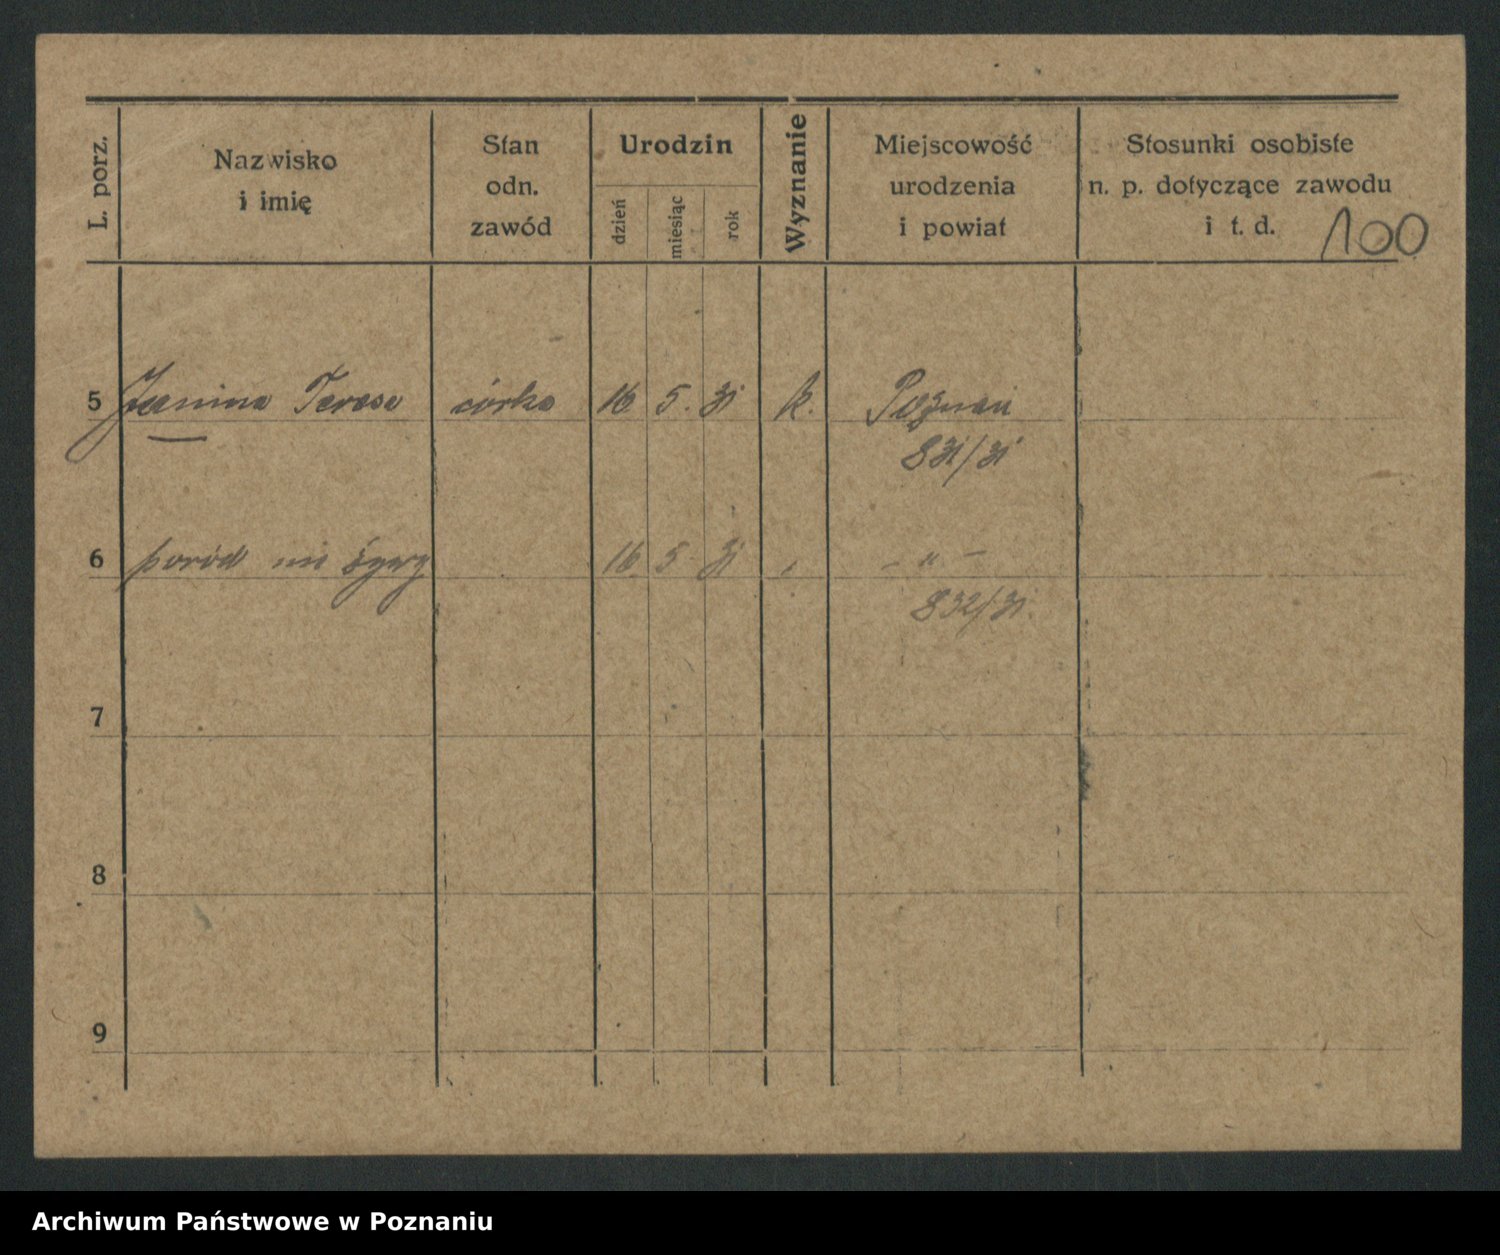 L. porz.
Nazwisko
i imię
Stan
odn.
zawód
Urodzin
dzień
miesiąc
rok
Wyznanie
Miejscowość
urodzenia
i powiat
Stosunki osobiste
n. p. dotyczące zawodu
i t. d.
100
5 Janina Teresa córka 16 5. 31 k. Poznań
831/31
6 poród nie żywy 16 5 31 - " -
832/31.
7
8
9
Archiwum Państwowe w Poznaniu